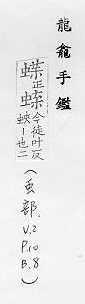 龍龕手鑑
蝶正蝶今徒叶反蛺丨也二
(虫部, V.2 P.10 B.8)